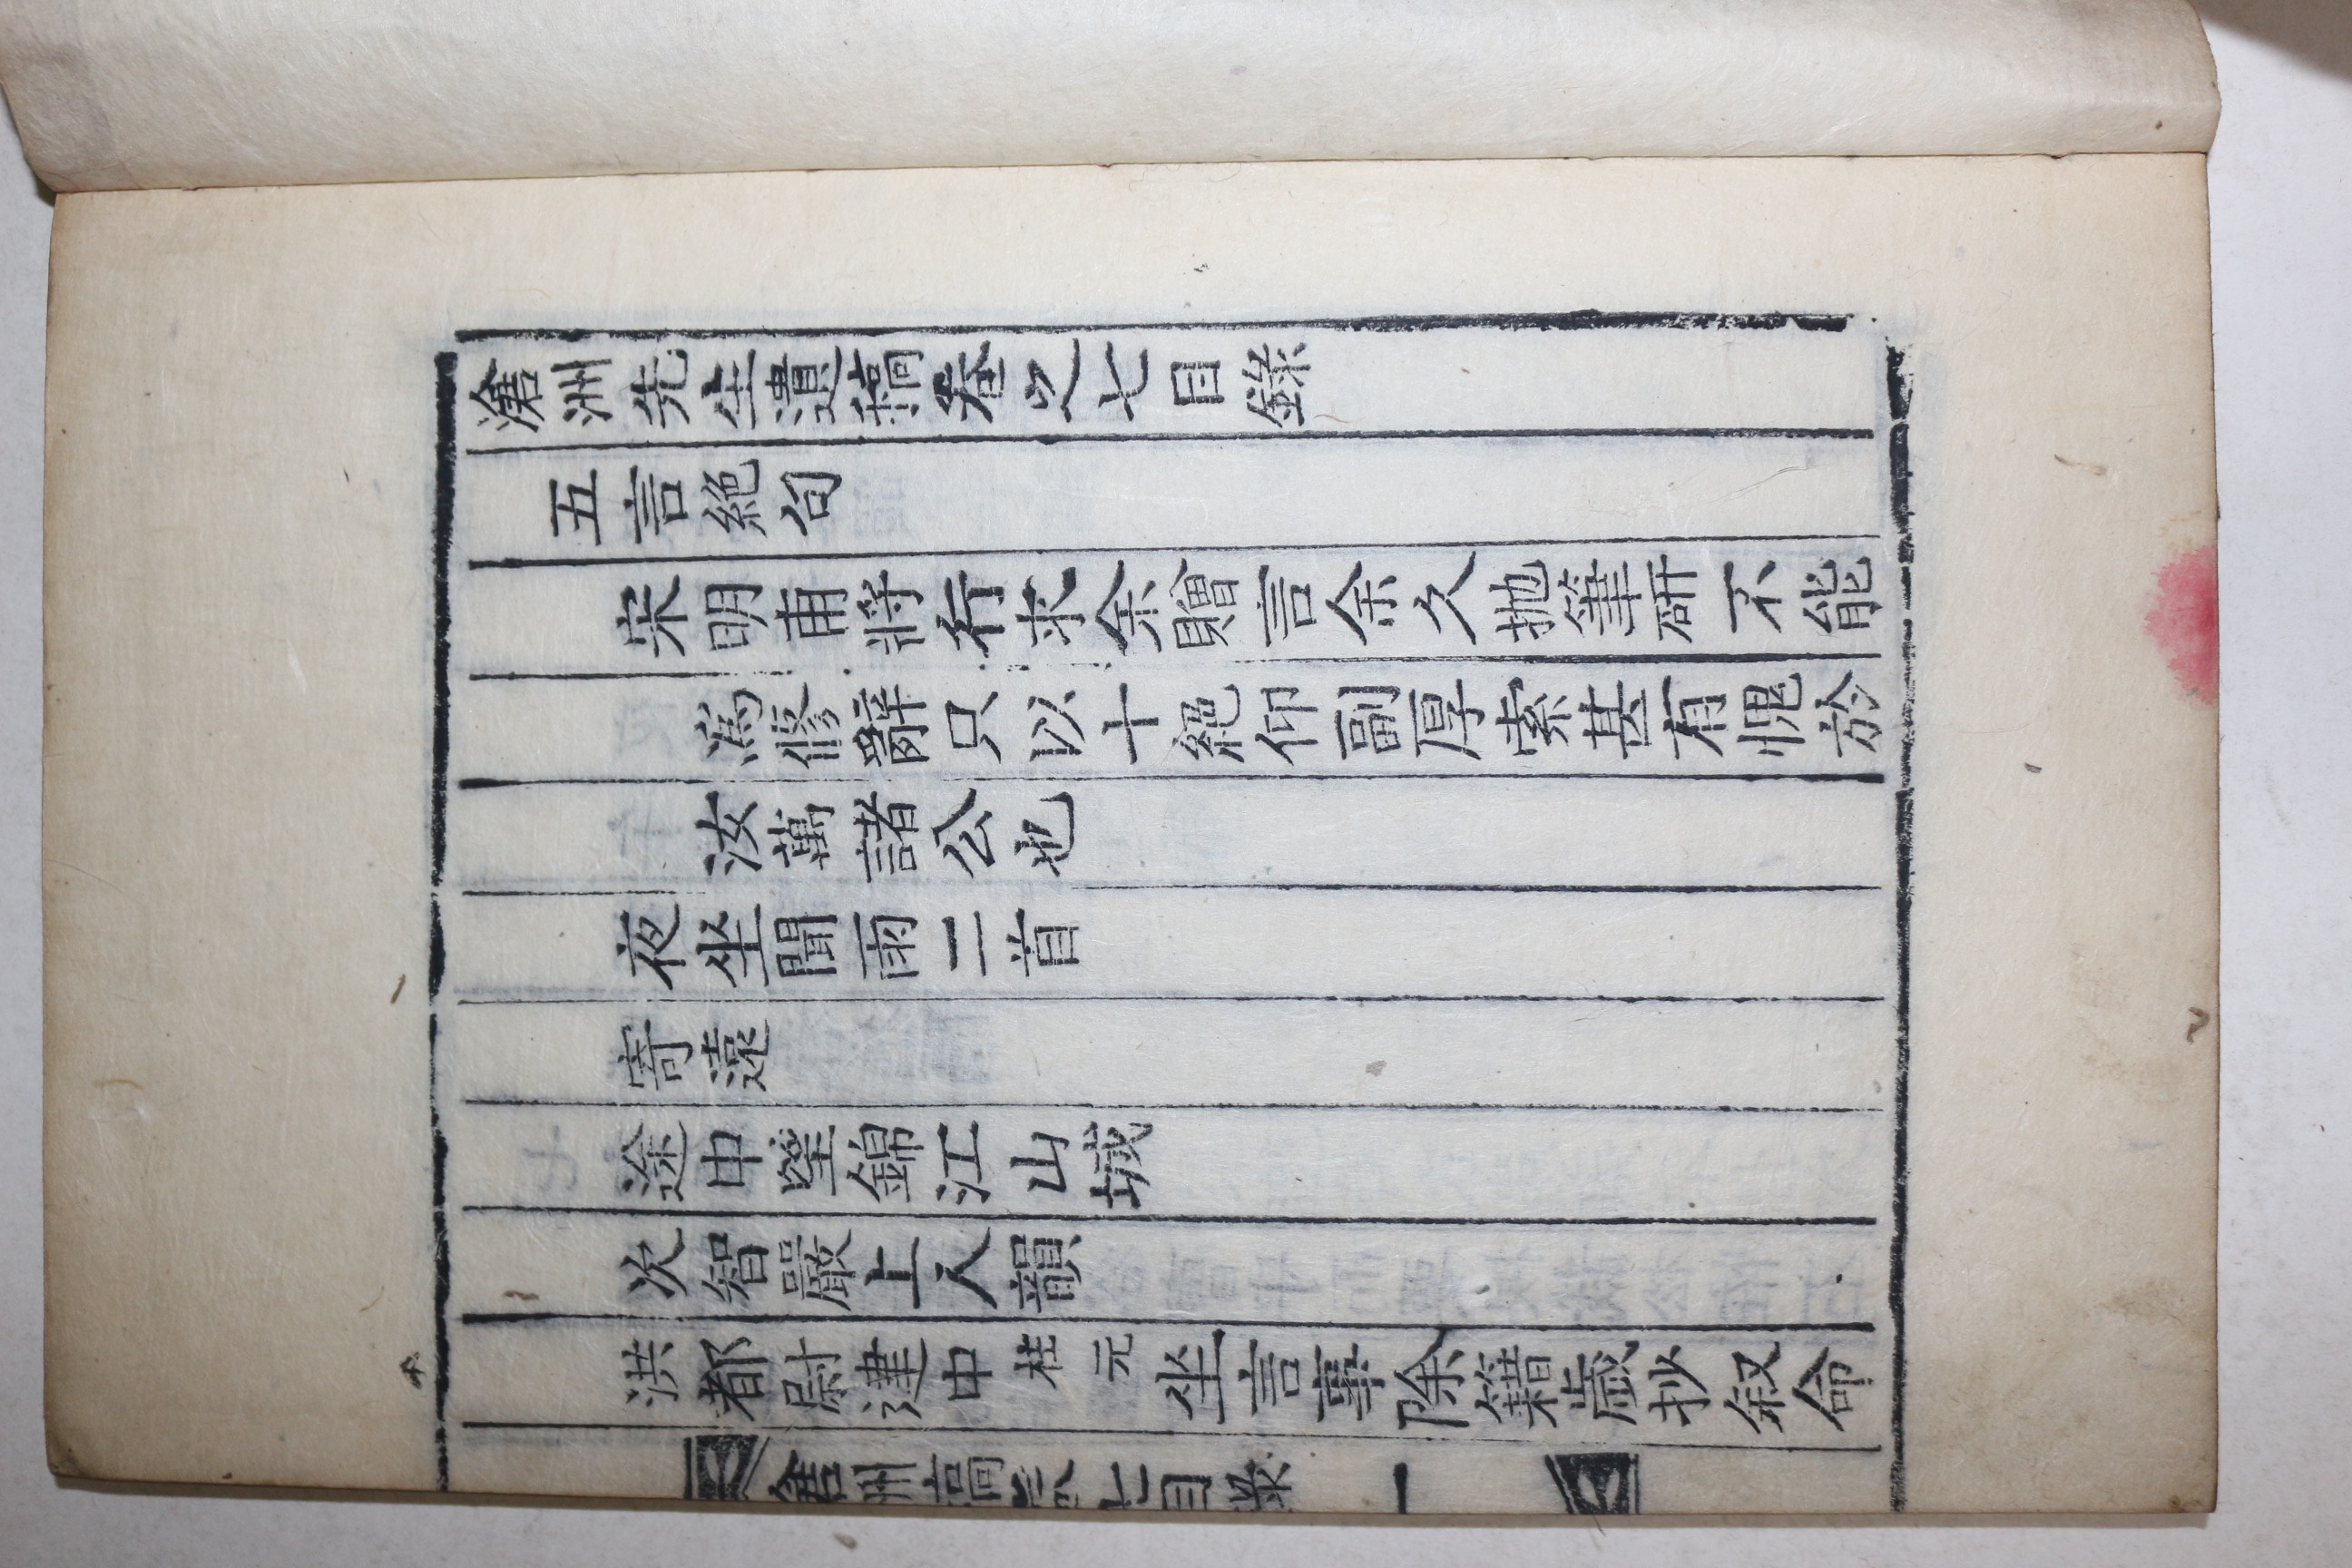 滄洲先生遺稿卷之七目錄
五言絕句
宋明甫將行求余贈言余久拋筆硏不能
爲修辭只以十絕仰副厚索甚有愧於
汝萬諸公也
夜坐聞雨二首
寄遠
途中望錦江山城
次智嚴上人韻
洪都尉建中柱元坐言事除籍歲抄叙命
滄州稿卷七目錄 一